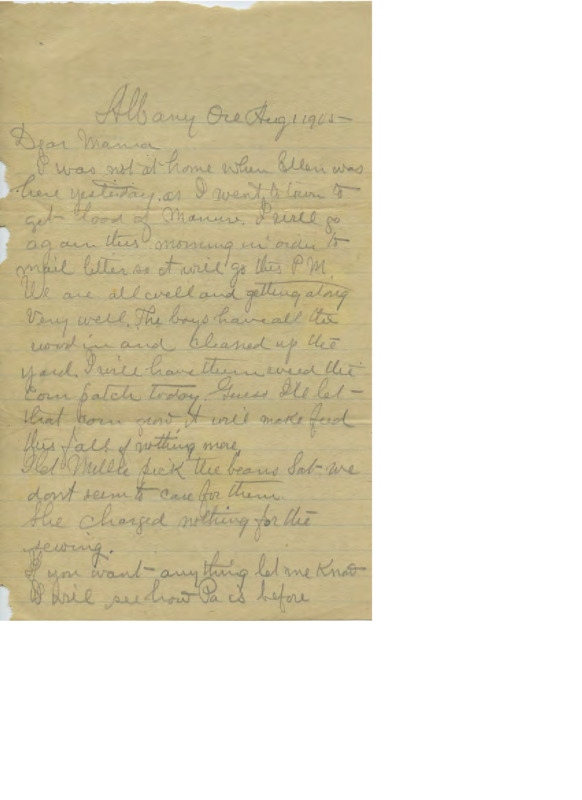 Albany Ore Aug 1 1915
Dear Mama
I was not at home when Ellen was
here yesterday. as I went to town to
get load of Manure. I will go
again this morning in order to
mail letter so it will go this P.M.
We are all well and getting along
very well. The boys have all the
wood in and cleaned up the
yard. I will have them weed the
corn patch today. Guess I'll let
that corn grow it will make feed
this fall if nothing more.
I let Millie pick the beans Sat. we
dont seem to care for them.
She charged nothing for the
sewing.
If you want anything let me know
I will see how Pa is before